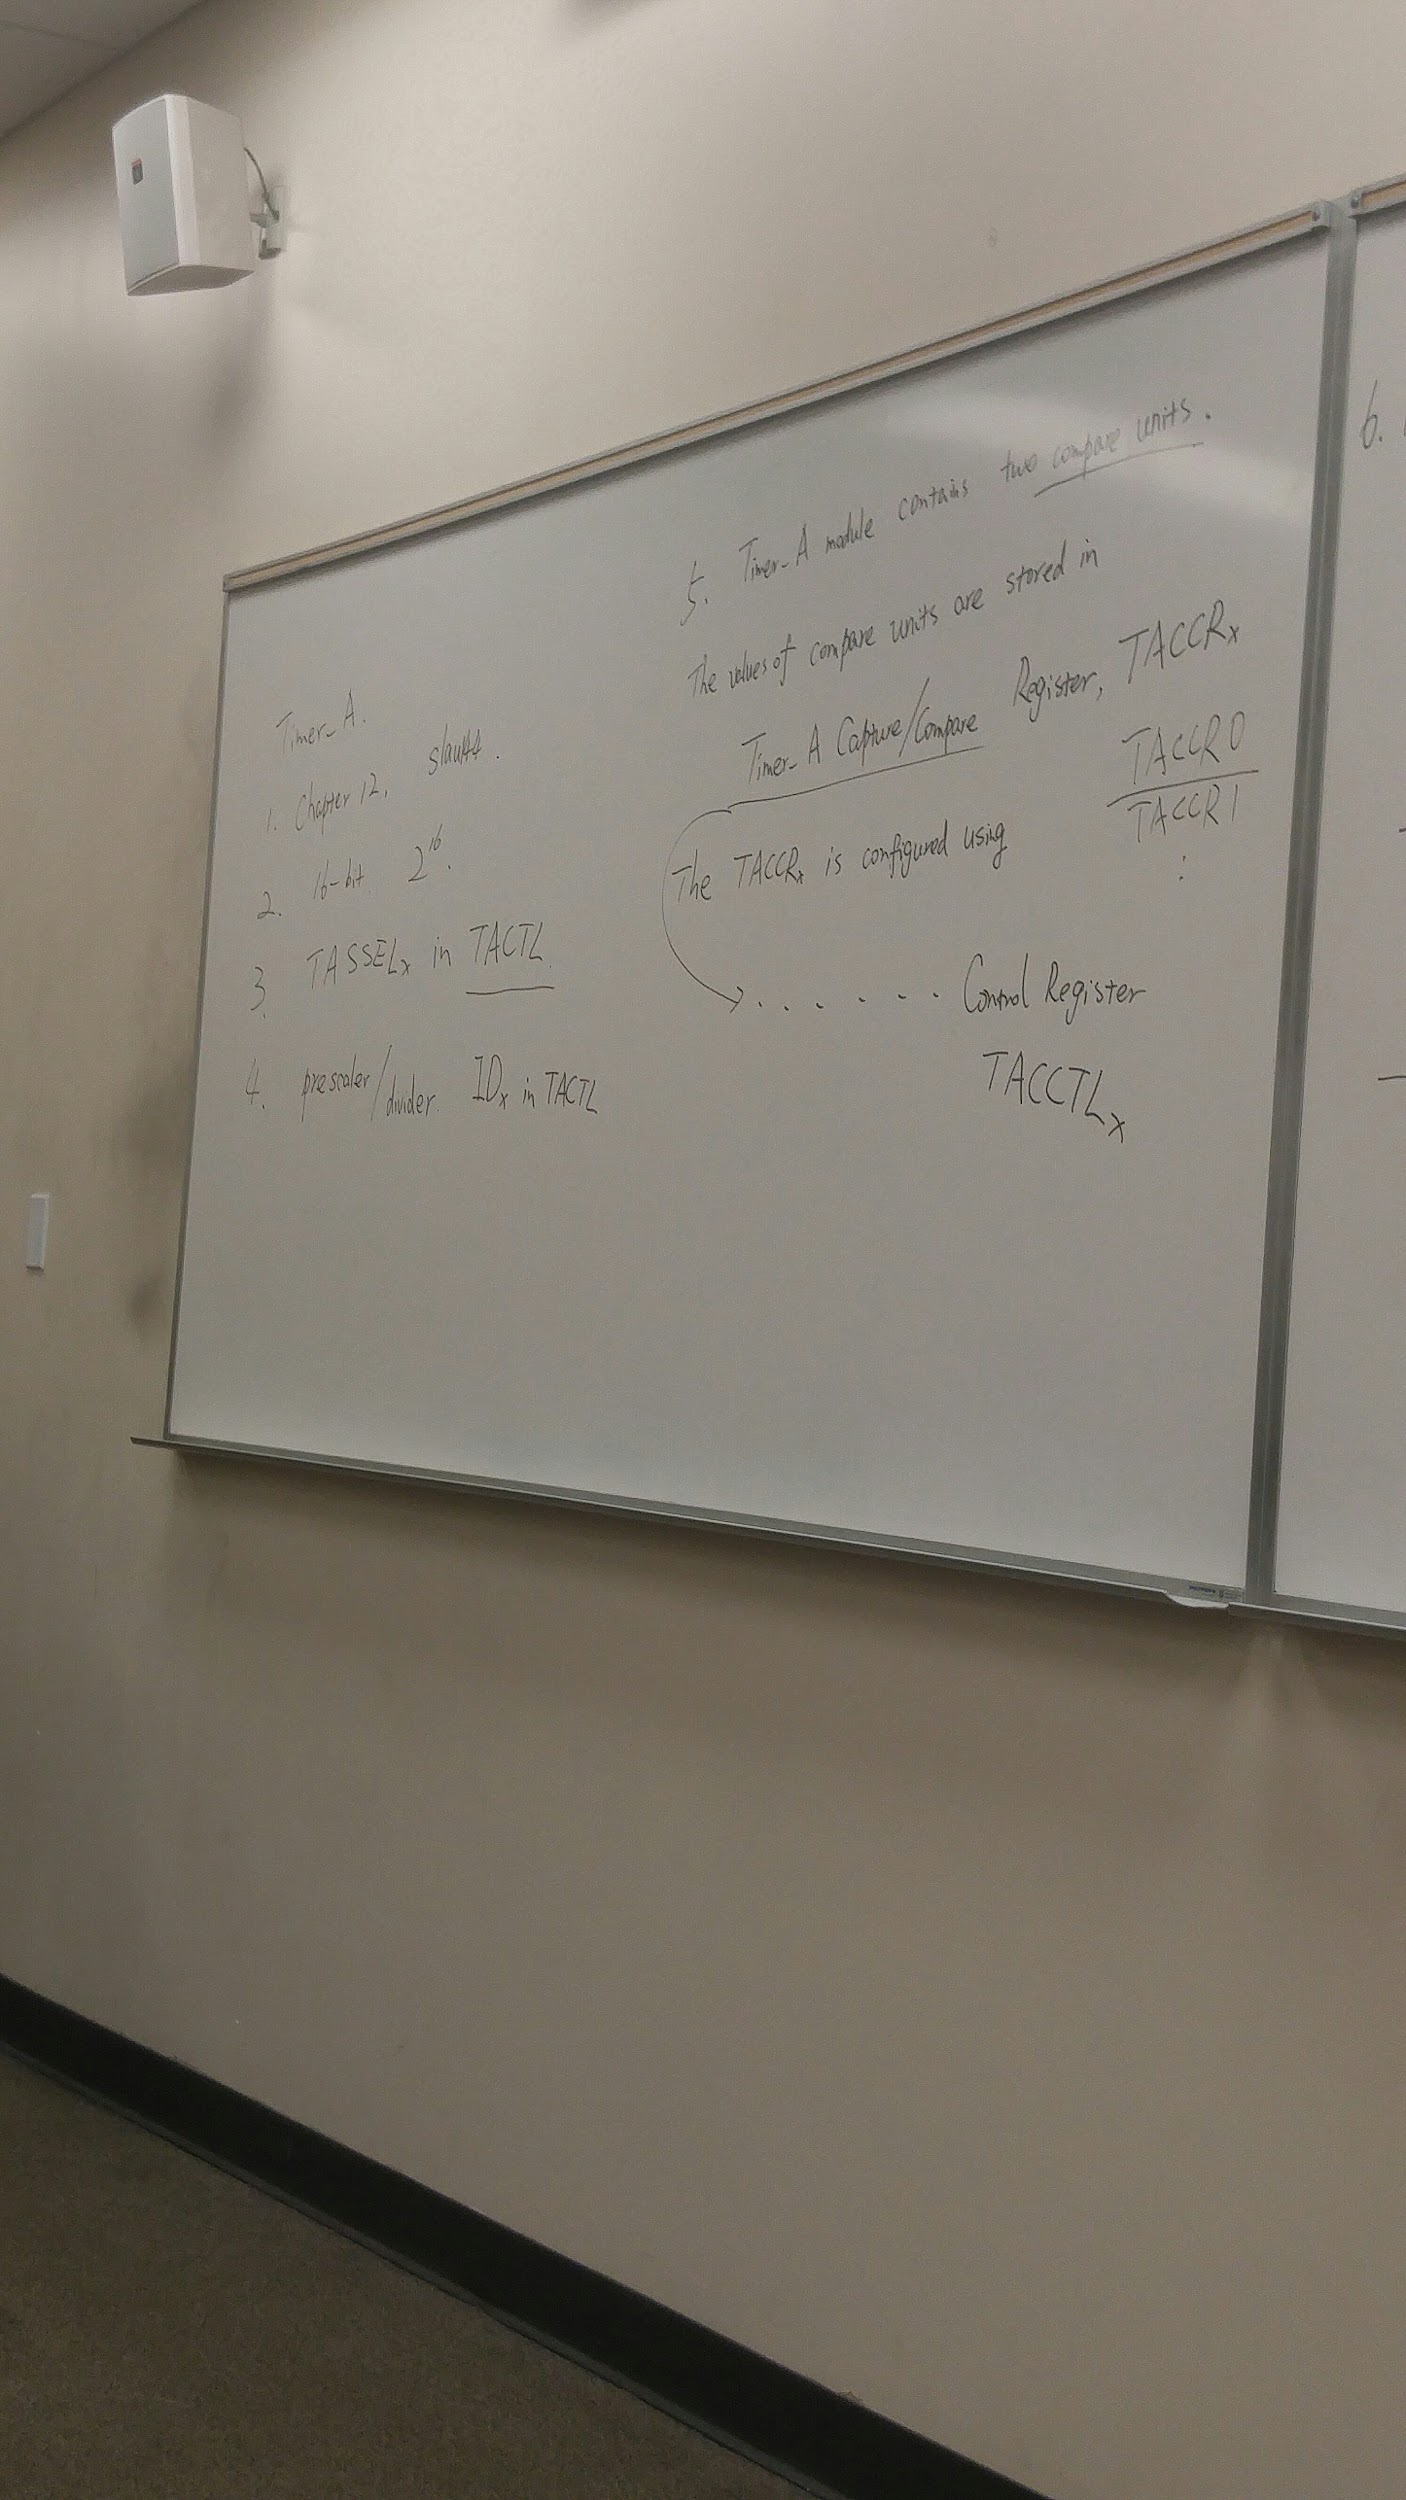 Timer_A.
1. Chapter 12, slau144.
2. 16-bit 2^16.
3. TASSELx in TACTL
4. prescaler/divider. IDx in TACTL
5. Timer_A module contains two compare units.
The values of compare units are stored in
Timer_A Capture/Compare Register, TACCRx
TACCR0
TACCR1
:
The TACCRx is configured using
. . . . . . Control Register
TACCTLx
6.